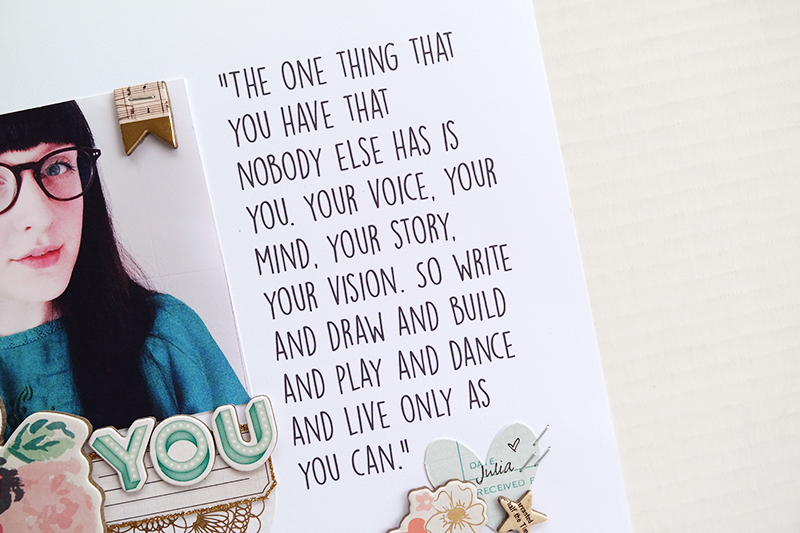 "THE ONE THING THAT
YOU HAVE THAT
NOBODY ELSE HAS IS
YOU. YOUR VOICE, YOUR
MIND, YOUR STORY,
YOUR VISION. SO WRITE
AND DRAW AND BUILD
AND PLAY AND DANCE
AND LIVE ONLY AS
YOU CAN."
YOU
DATE
Julia
RECEIVED